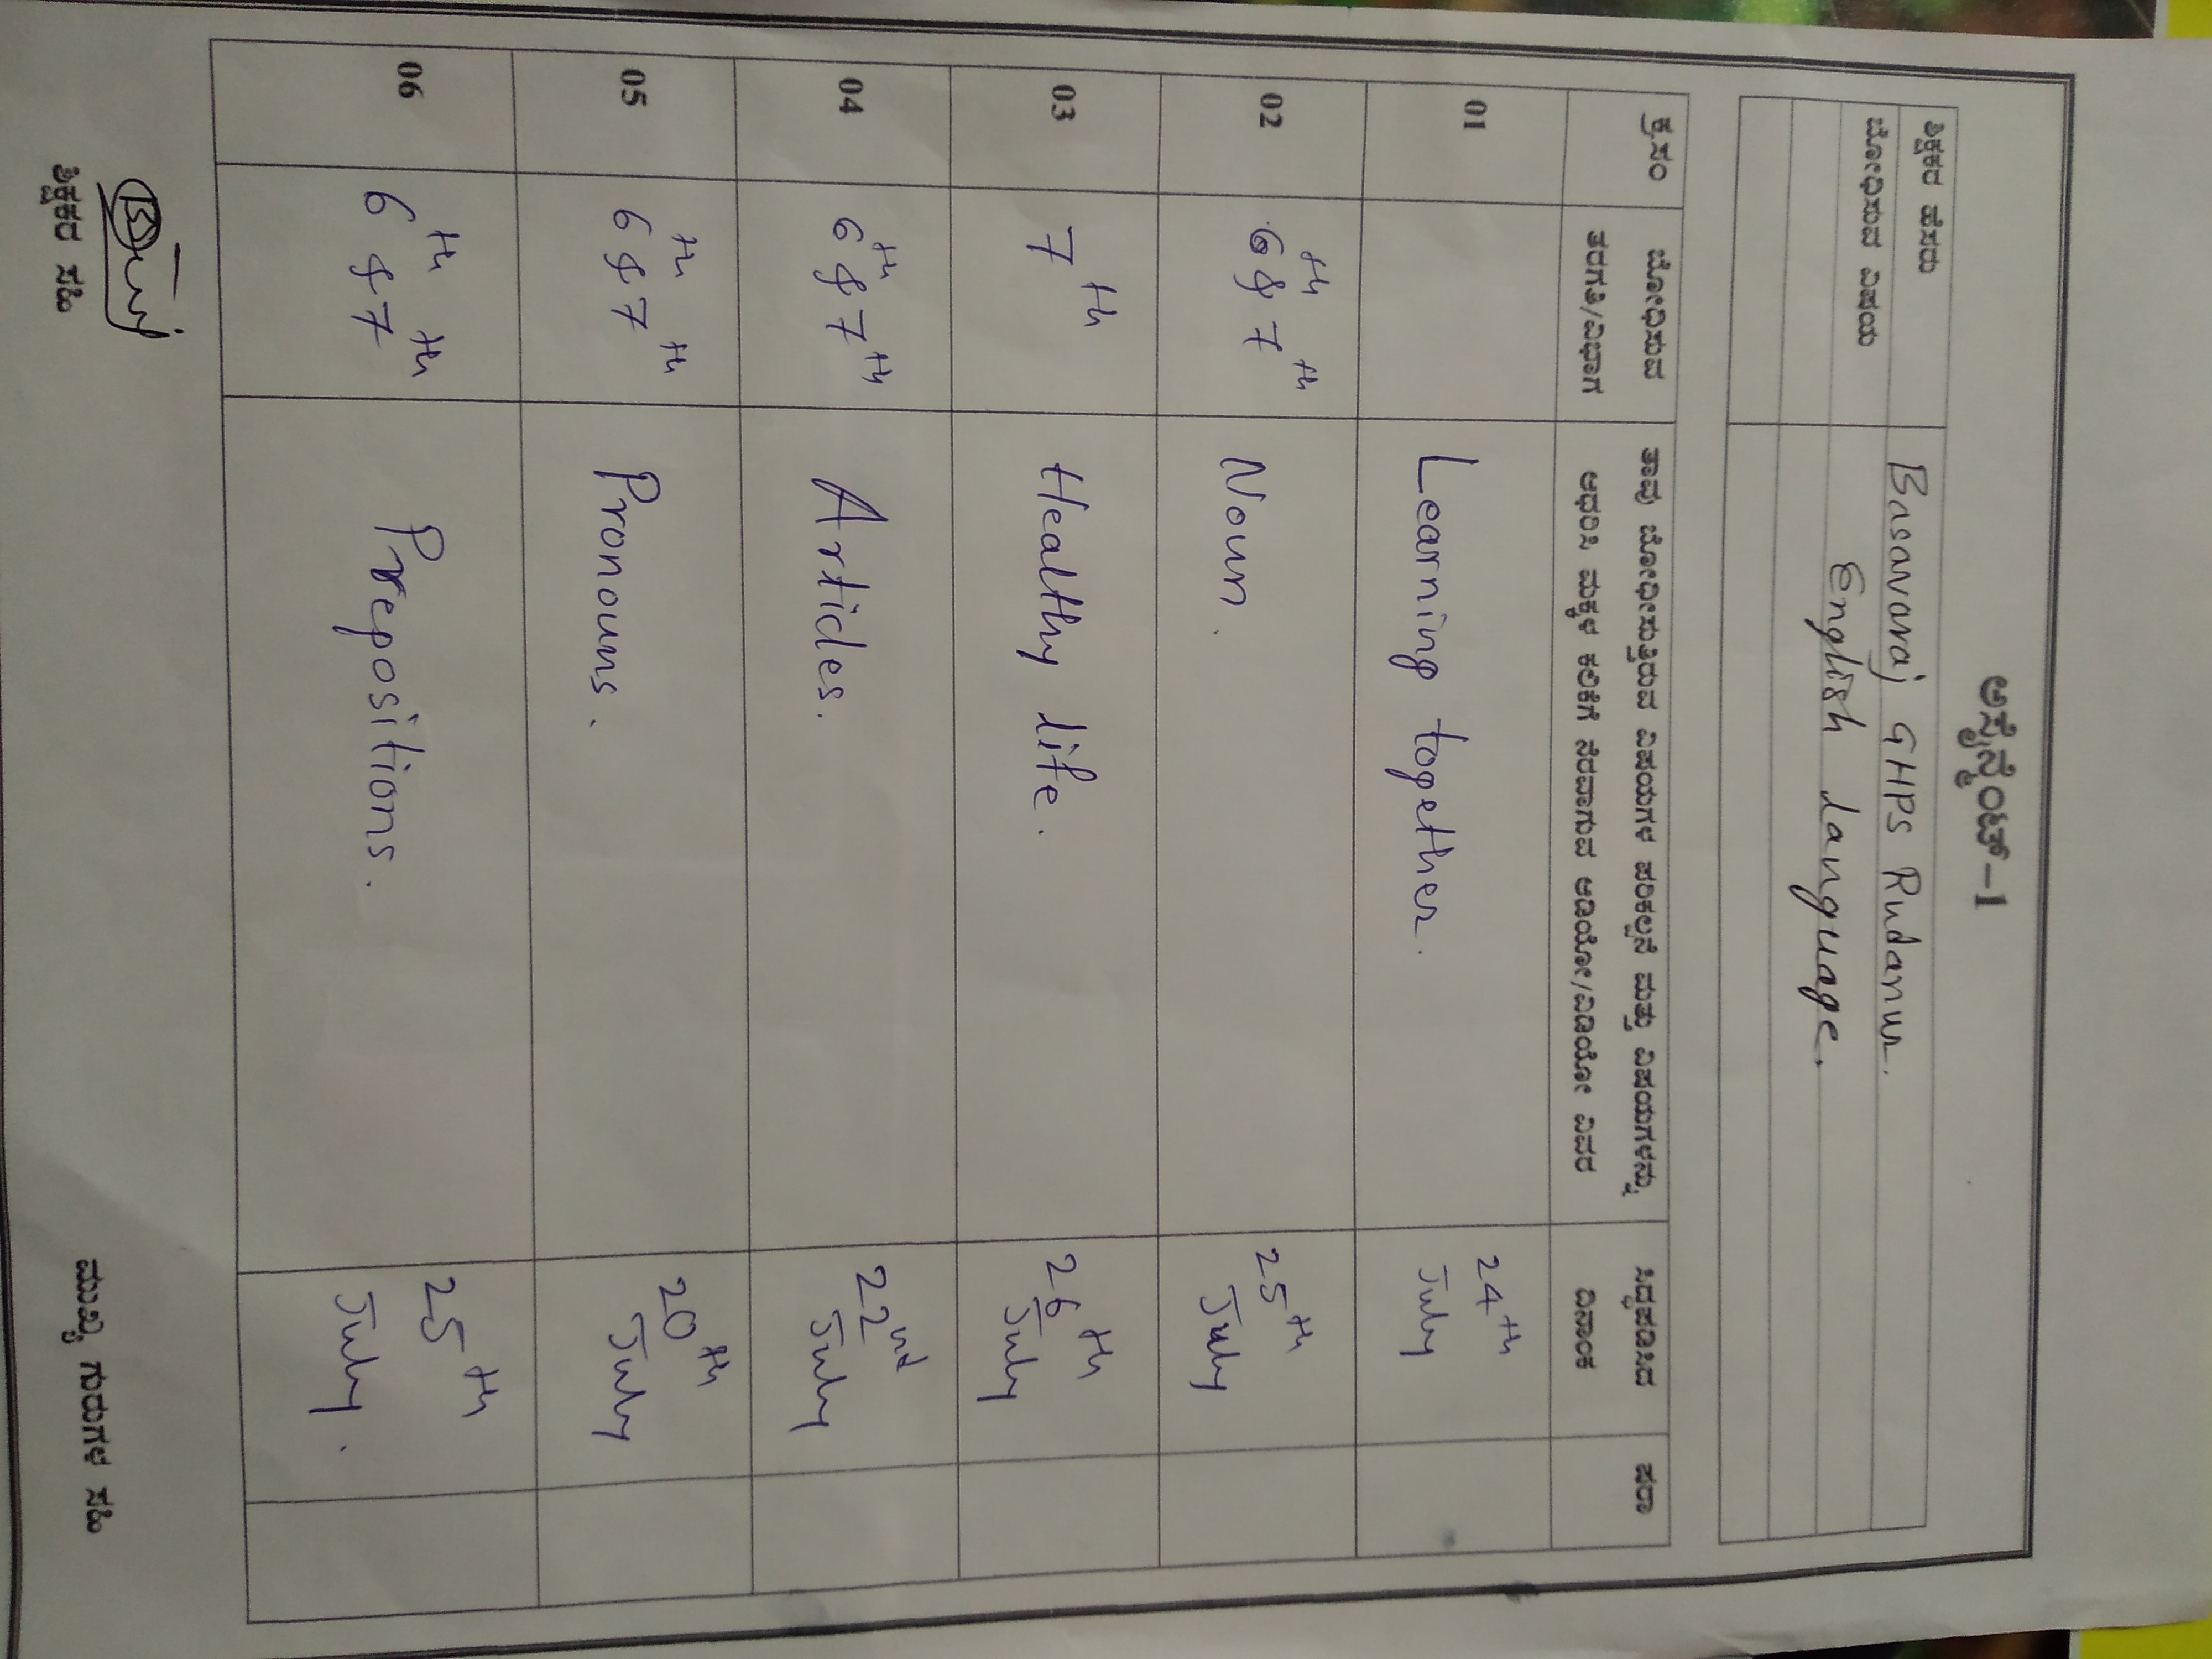 ಅಸೈನ್ಮೆಂಟ್-1
ಶಿಕ್ಷಕರ ಹೆಸರು Basavaraj GHPS Rudanur.
ಬೋಧಿಸುವ ವಿಷಯ English Language.
ಕ್ರ.ಸಂ ಬೋಧಿಸುವ ತಾವು ಬೋಧೀಸುತ್ತಿರುವ ವಿಷಯಗಳ ಪರಿಕಲ್ಪನೆ ಮತ್ತು ವಿಷಯಗಳನ್ನು ಸಿದ್ಧಪಡಿಸಿದ ಷರಾ
ತರಗತಿ/ವಿಭಾಗ ಆಧರಿಸಿ ಮಕ್ಕಳ ಕಲಿಕೆಗೆ ನೆರವಾಗುವ ಆಡಿಯೋ/ವಿಡಿಯೋ ವಿವರ ದಿನಾಂಕ
01 Learning together. 24th July
02 6th & 7th Noun. 25th July
03 7th Healthy life. 26th July
04 6th & 7th Articles. 22nd July
05 6th & 7th Pronouns. 20th July
06 6th & 7th Prepositions. 25th July.
ಶಿಕ್ಷಕರ ಸಹಿ ಮುಖ್ಯ ಗುರುಗಳ ಸಹಿ